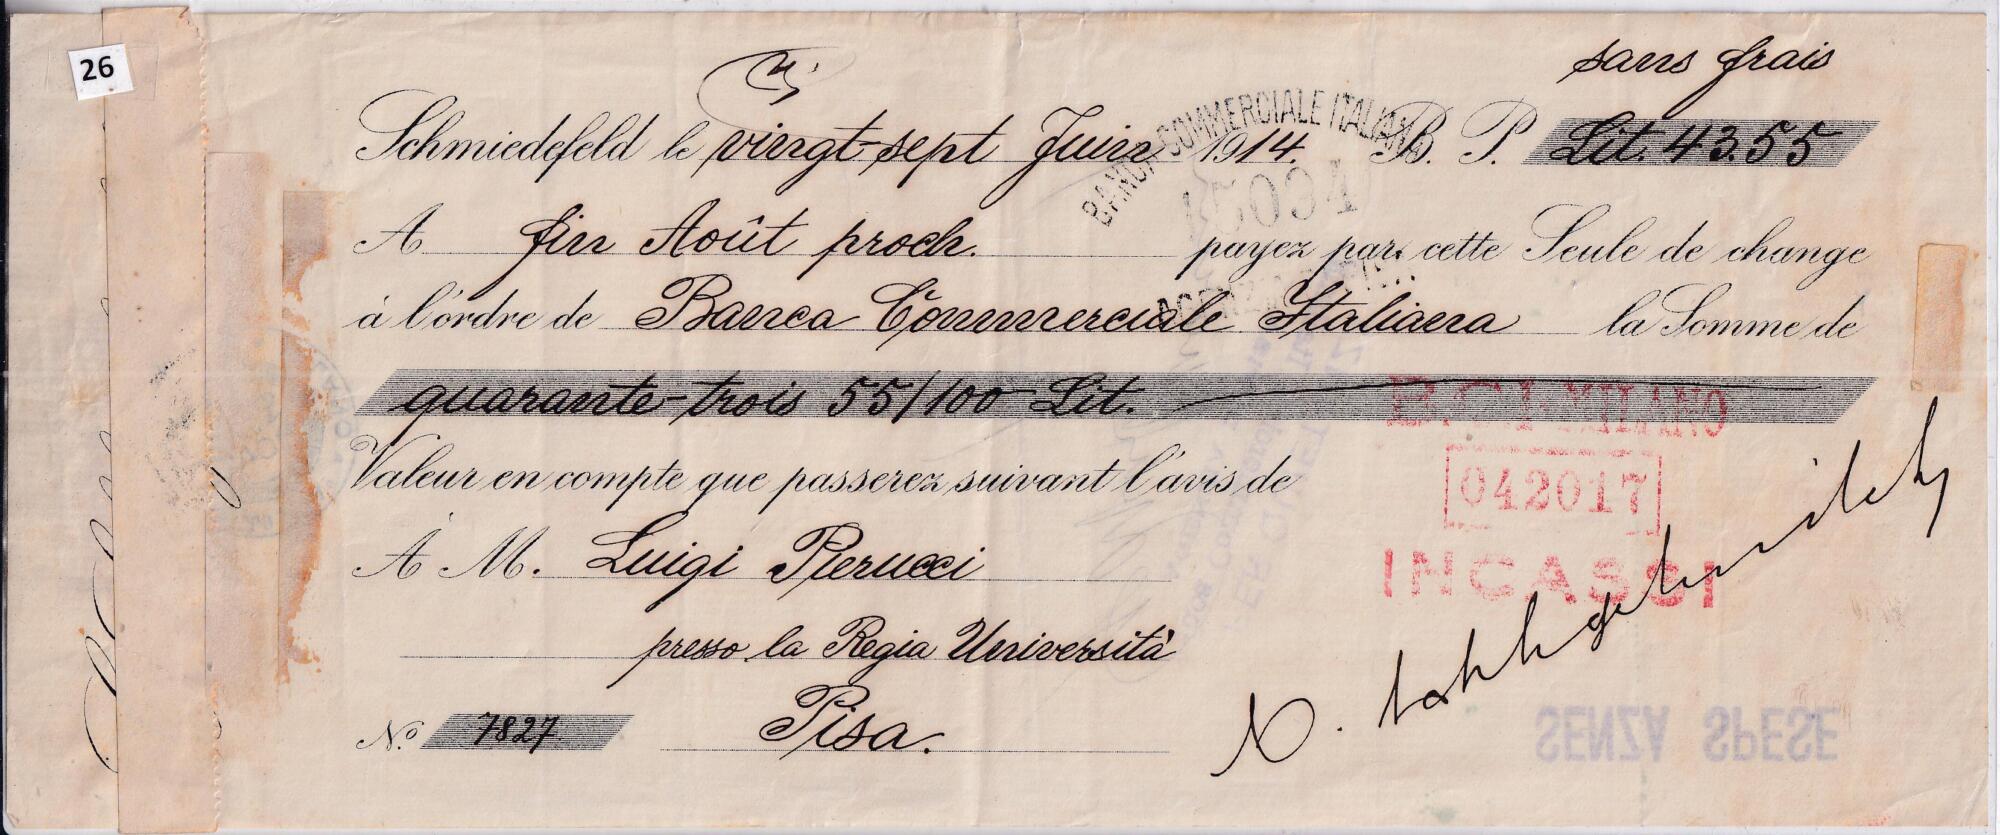 26
sans frais
Schmiedefeld le vingt-sept Juin 1914. B. P. Lit. 43.55
BANCA COMMERCIALE ITALIANA
15094
A fin Août proch. payez par cette Seule de change
à l'ordre de Banca Commerciale Italiana la Somme de
quarante-trois 55/100 Lit.
B.C.I. MILANO
Valeur en compte que passerez suivant l'avis de
042017
À M. Luigi Pierucci
INCASSI
presso la Regia Università
No 7827 Pisa.
SENZA SPESE